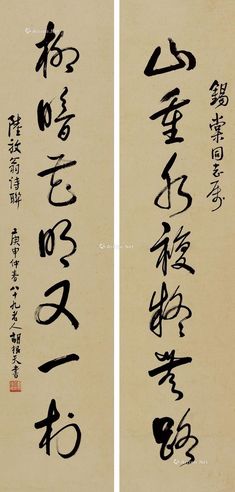 錫棠同志屬
山重水複疑無路
柳暗花明又一村
陸放翁詩聯
庚申仲春八十九老人胡根天書